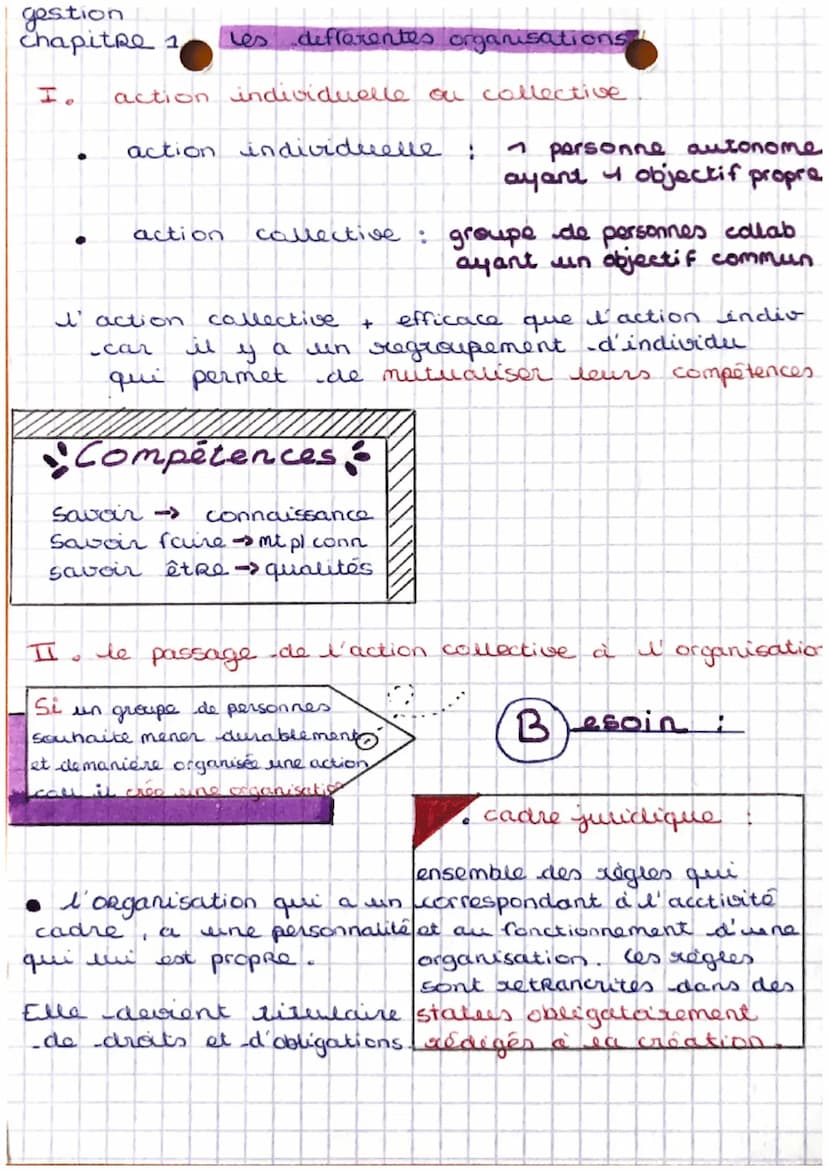 gestion
chapitre 1 les differentes organisations
I. action individuelle ou collective.
• action individuelle : 1 personne autonome
ayant 1 objectif propre
• action collective : groupe de personnes collab
ayant un objectif commun
l'action collective + efficace que l'action indiv
car il y a un regroupement d'individu
qui permet de mutualiser leurs compétences
Compétences
savoir → connaissance
Savoir faire → mt pl conn
savoir être → qualités
II. le passage de l'action collective à l'organisatio
Si un groupe de personnes
souhaite mener durablement
et demanière organisée une action
coll il crée une organisation
Besoin :
• cadre juridique :
ensemble des règles qui
correspondant à l'acctivité
et au fonctionnement d'une
organisation. Ces règles
sont retranscrites dans des
status obligatoirement
rédigés à sa création.
• l'organisation qui a un
cadre, a une personnalité
qui lui est propre.
Elle devient titulaire
de droits et d'obligations.